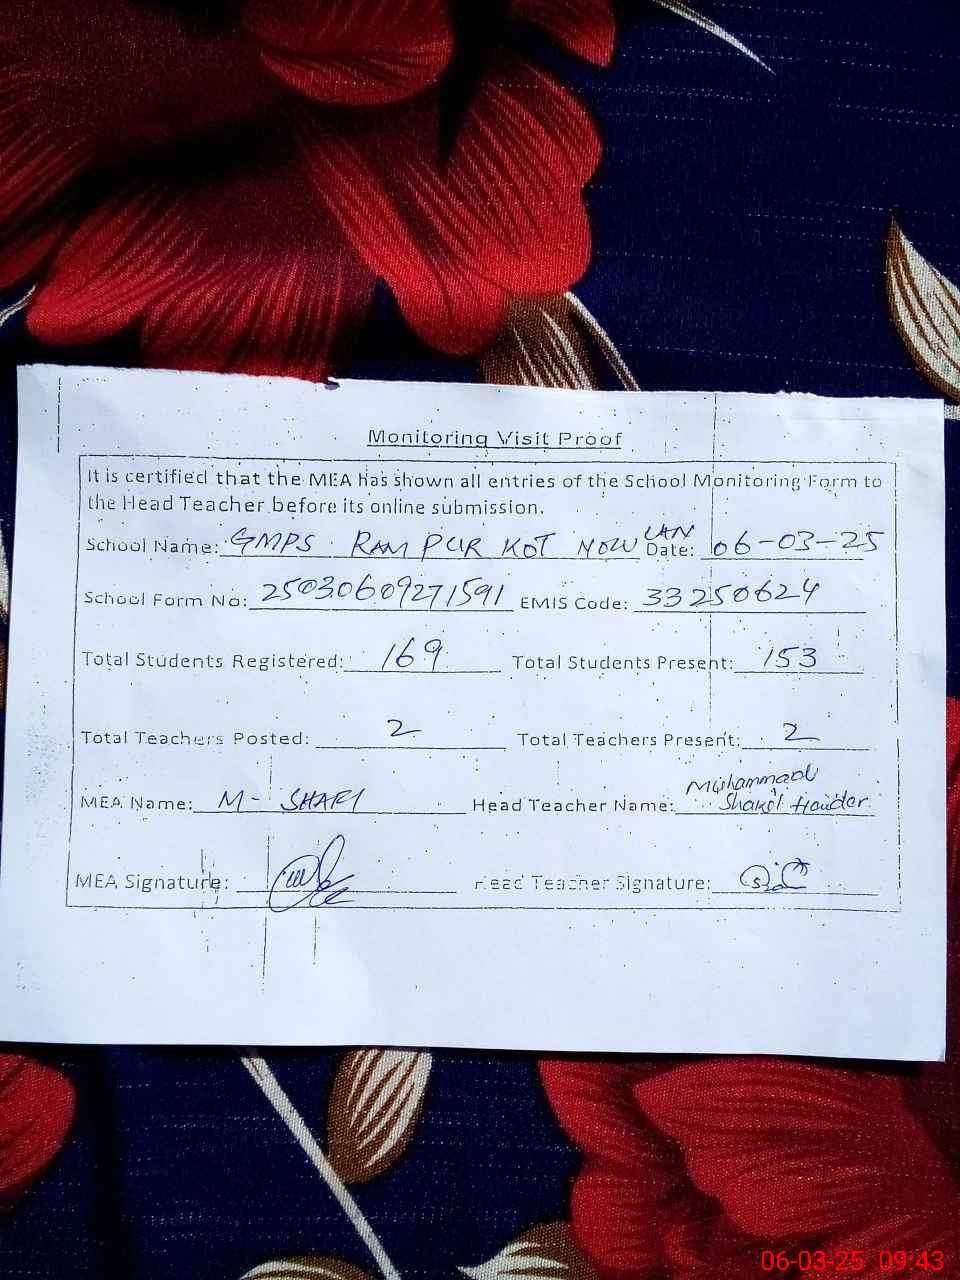 Monitoring Visit Proof
It is certified that the MEA has shown all entries of the School Monitoring Form to
the Head Teacher before its online submission.
School Name: GMPS RAM PUR KOT NOWLAN Date: 06-03-25
School Form No: 25030609271591 EMIS Code: 33250624
Total Students Registered: 169 Total Students Present: 153
Total Teachers Posted: 2 Total Teachers Present: 2
MEA Name: M- SHAFI Head Teacher Name: Muhammad
MEA Signature: Head Teacher Signature:
06-03-25 09:43